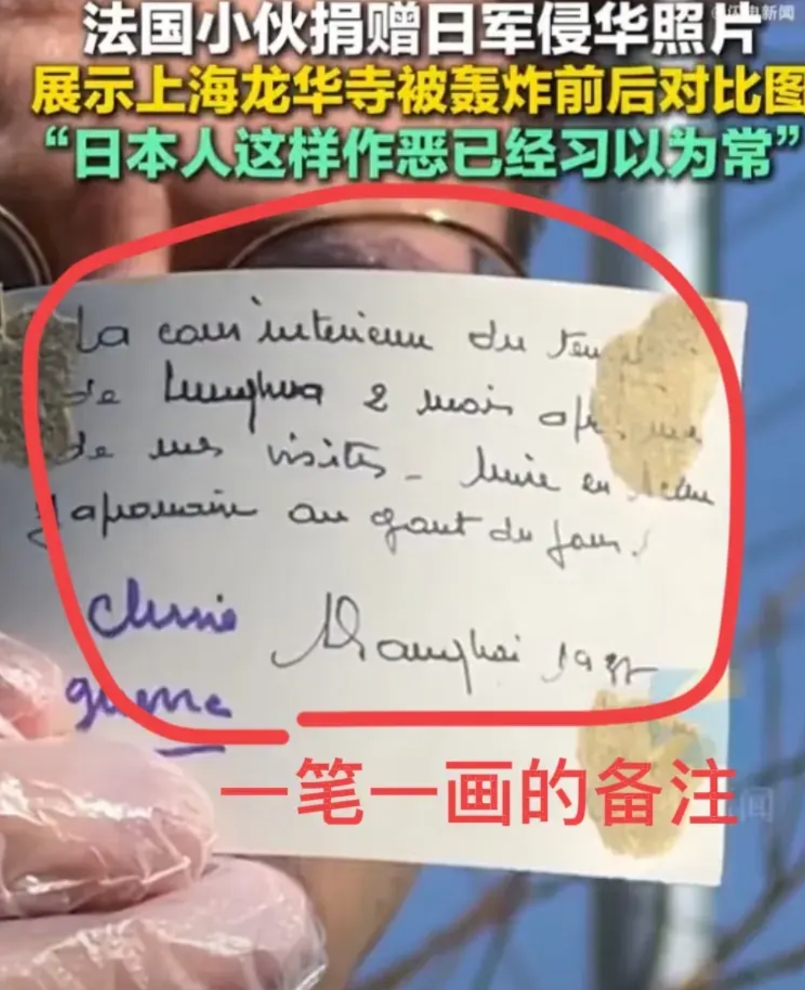 闪电新闻
法国小伙捐赠日军侵华照片
展示上海龙华寺被轰炸前后对比图
“日本人这样作恶已经习以为常”
La cour intérieure du
de Lunghua 2 mois
de mes visites - Mise en
Japonaise au gout du jour!
Chine
Shanghai 1937
guerre
一笔一画的备注
闻